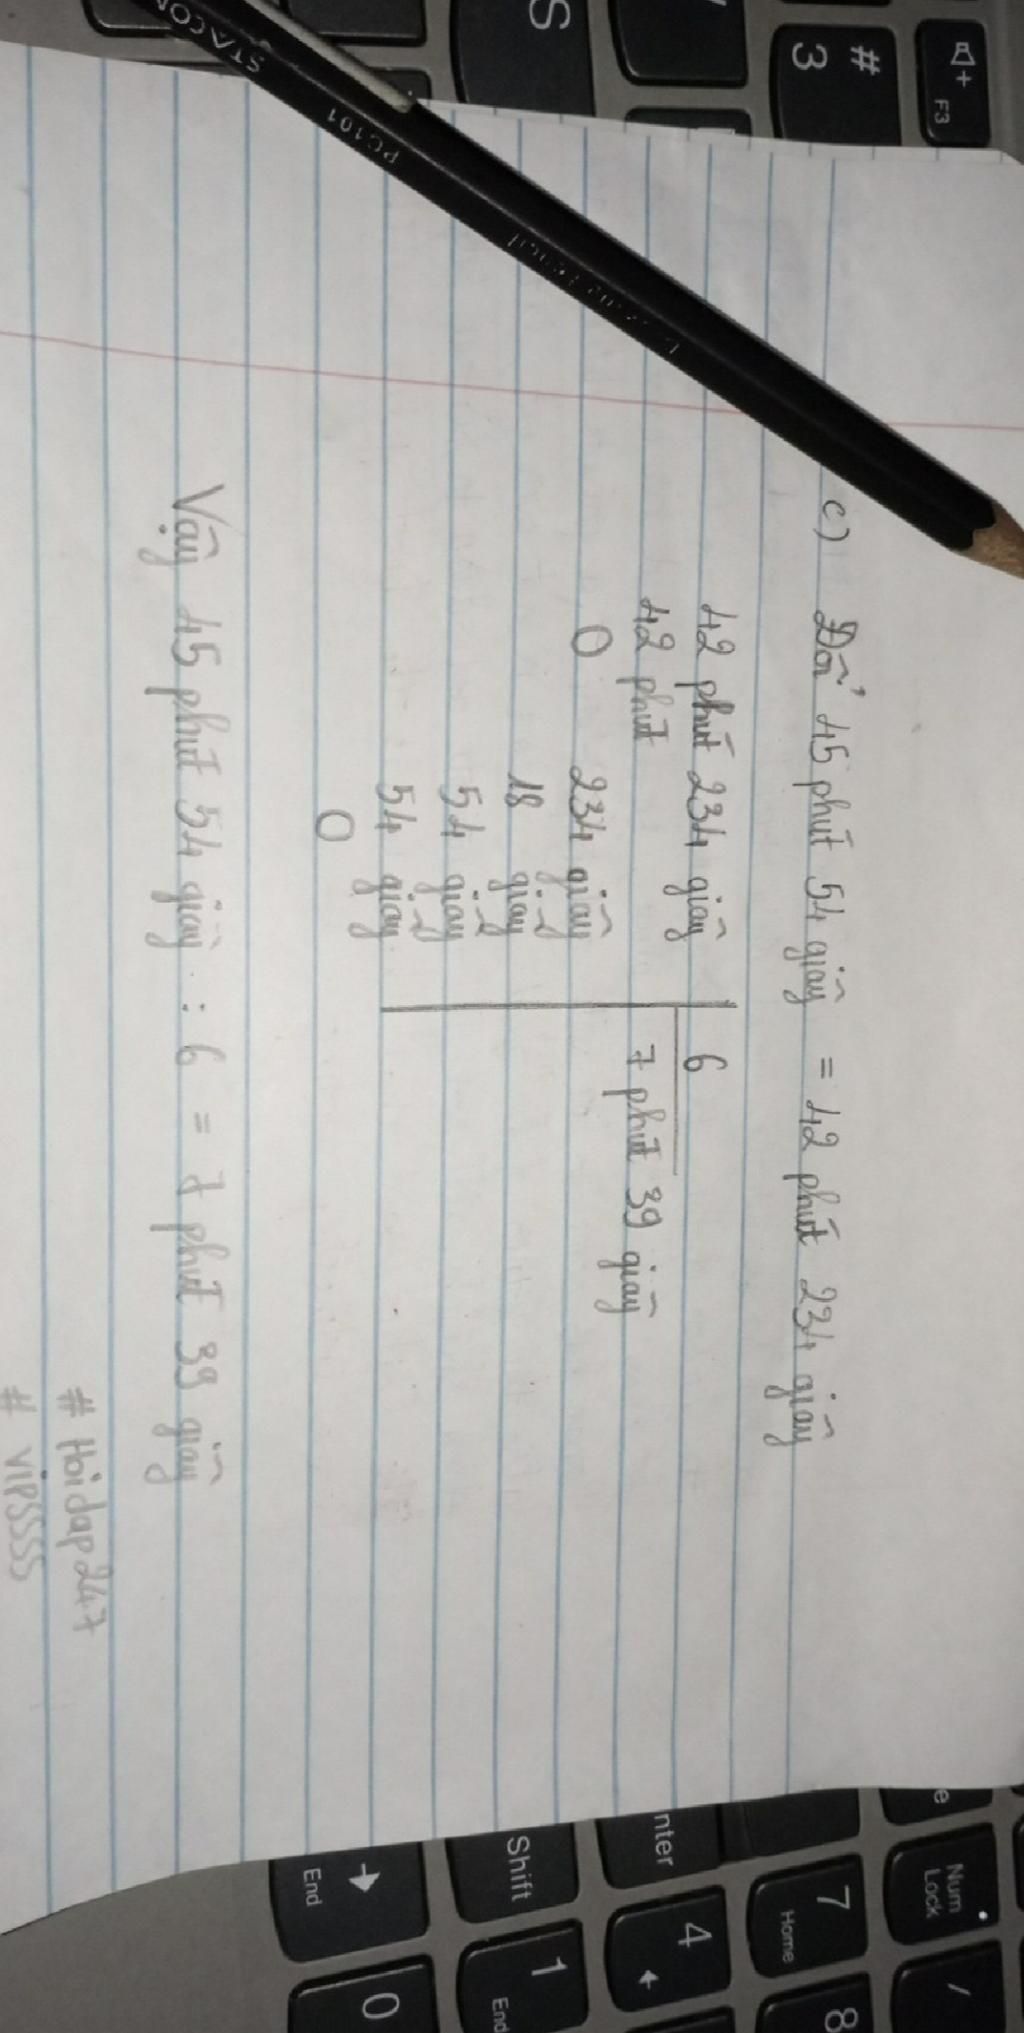 c) Đổi 45 phút 54 giây = 42 phút 234 giây
42 phút 234 giây 6
42 phút 7 phút 39 giây
0 234 giây
18 giây
54 giây
54 giây
0
Vậy 45 phút 54 giây : 6 = 7 phút 39 giây
# Hoidap247
# VIPSSSS
STACOM PC101
S
# 3
F3
Num Lock
/
7 Home
8
nter
4
Shift
1 End
End
0